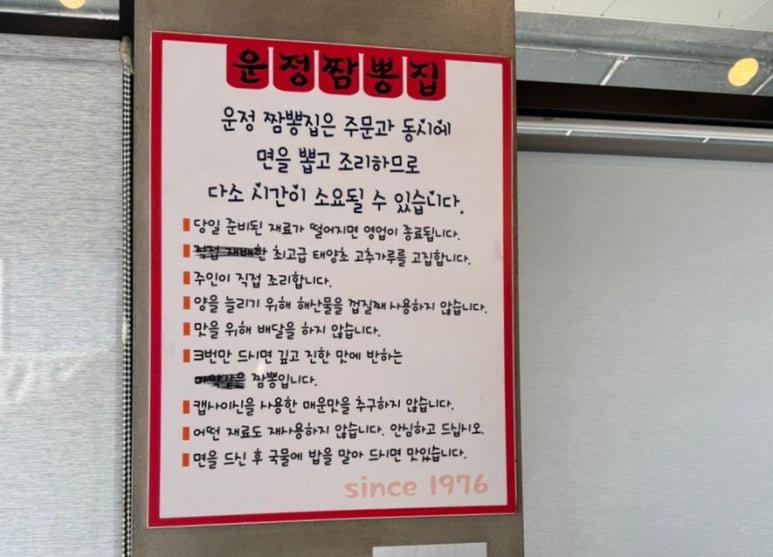 운정짬뽕집
운정 짬뽕집은 주문과 동시에
면을 뽑고 조리하므로
다소 시간이 소요될 수 있습니다.
당일 준비된 재료가 떨어지면 영업이 종료됩니다.
직접 재배한 최고급 태양초 고추가루를 고집합니다.
주인이 직접 조리합니다.
양을 늘리기 위해 해산물을 껍질째 사용하지 않습니다.
맛을 위해 배달을 하지 않습니다.
3번만 드시면 깊고 진한 맛에 반하는
짬뽕입니다.
캡사이신을 사용한 매운맛을 추구하지 않습니다.
어떤 재료도 재사용하지 않습니다. 안심하고 드십시오.
면을 드신 후 국물에 밥을 말아 드시면 맛있습니다.
since 1976